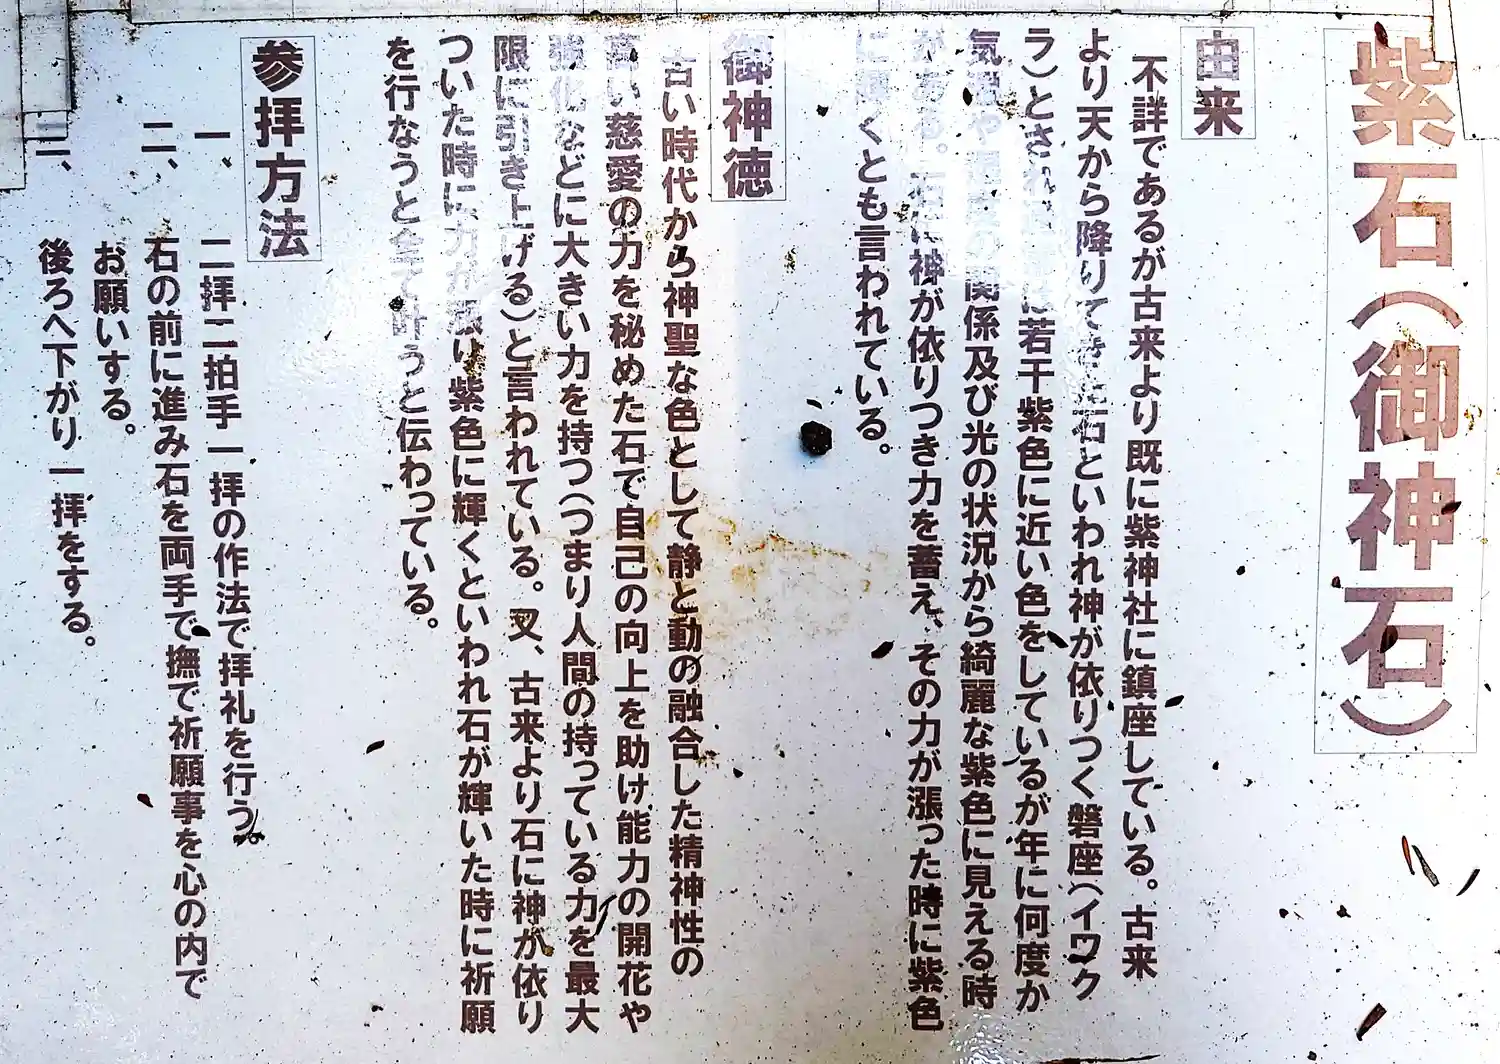 紫石(御神石)
由来
不詳であるが古来より既に紫神社に鎮座している。古来
より天から降りてきた石といわれ神が依りつく磐座(イワク
ラ)とされ 若干紫色に近い色をしているが年に何度か
気温や の関係及び光の状況から綺麗な紫色に見える時
がある。石に神が依りつき力を蓄え、その力が漲った時に紫色
に輝くとも言われている。
御神徳
古い時代から神聖な色として静と動の融合した精神性の
高い慈愛の力を秘めた石で自己の向上を助け能力の開花や
強化などに大きい力を持つ(つまり人間の持っている力を最大
限に引き上げる)と言われている。又、古来より石に神が依り
ついた時に力が漲り紫色に輝くといわれ石が輝いた時に祈願
を行なうと全て叶うと伝わっている。
参拝方法
一、 二拝二拍手一拝の作法で拝礼を行う。
二、 石の前に進み石を両手で撫で祈願事を心の内で
お願いする。
三、 後ろへ下がり一拝をする。